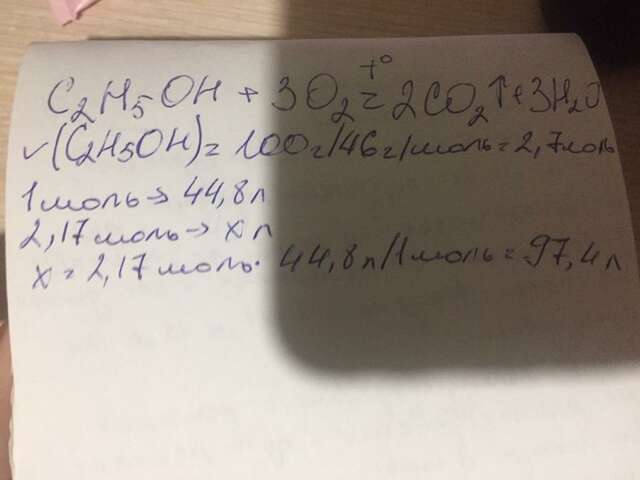 t°
C₂H₅OH + 3O₂ = 2CO₂↑+3H₂O
ν(C₂H5OH)= 100г/46г/моль= 2,7моль
1моль→ 44,8л
2,17моль→ x л
x = 2,17моль· 44,8л/1моль= 97,4л